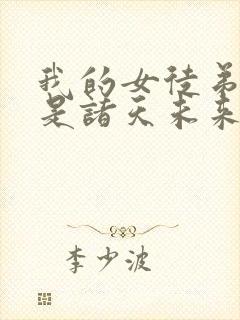 我的女徒弟
是諸天未来
李少波